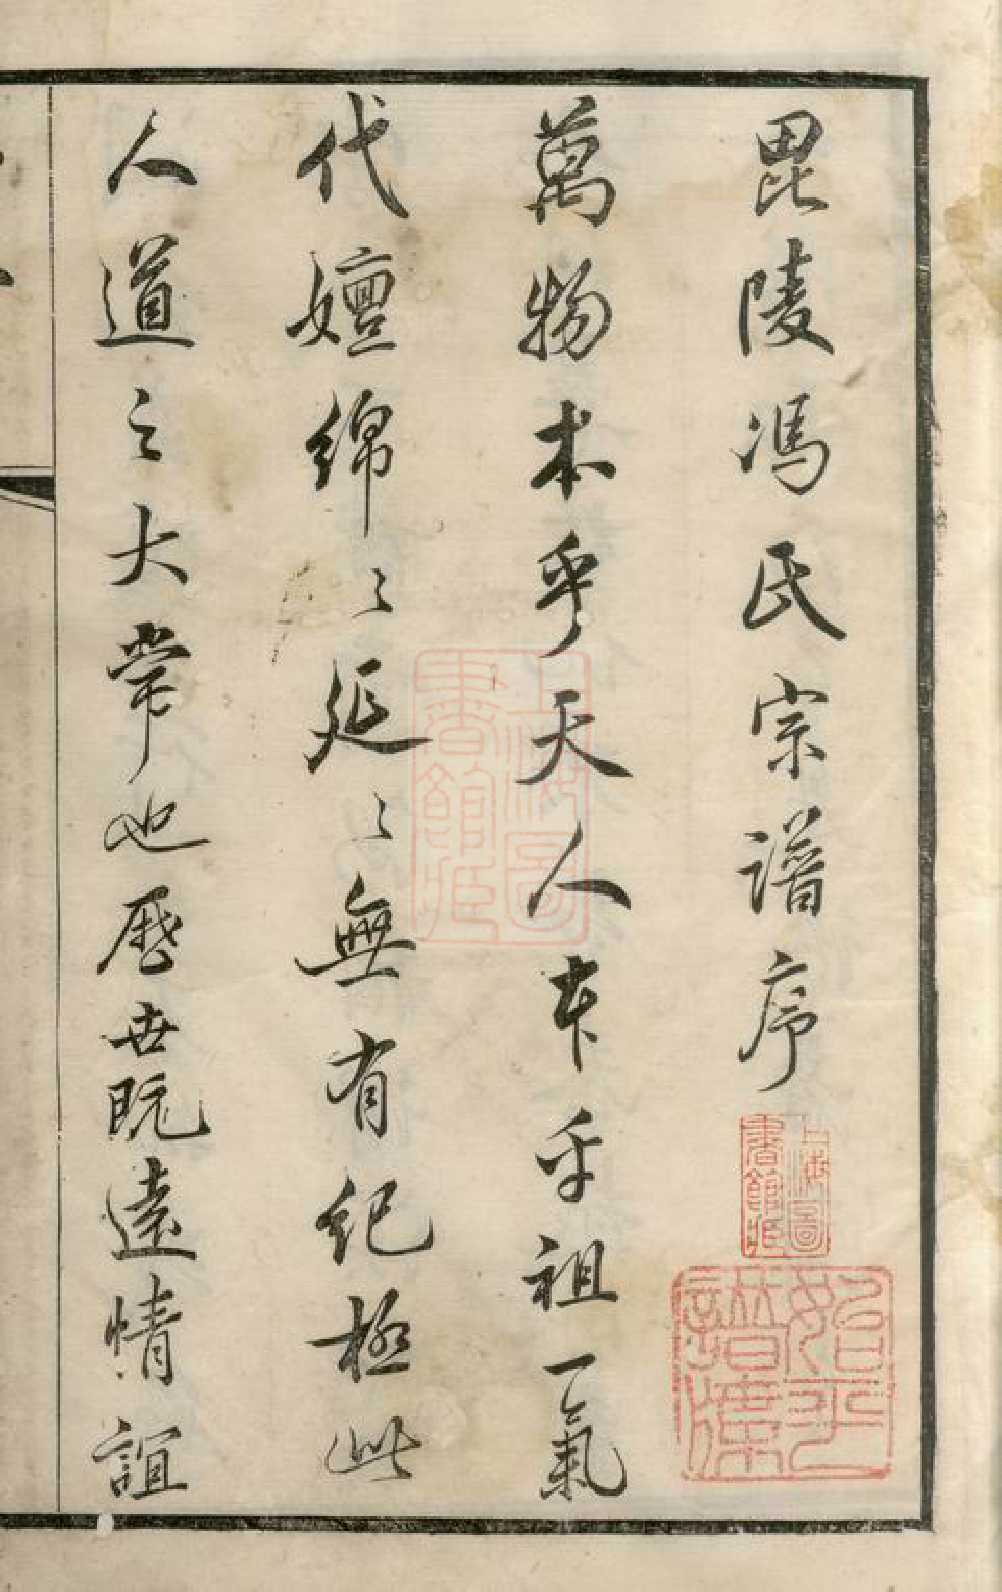 毘陵馮氏宗譜序
萬物本乎天人本乎祖一氣
代嬗綿〻延〻無有紀極此
人道之大常也歷世既遠情誼
上海圖
書館藏
始平
譜牒
上海圖
書館藏